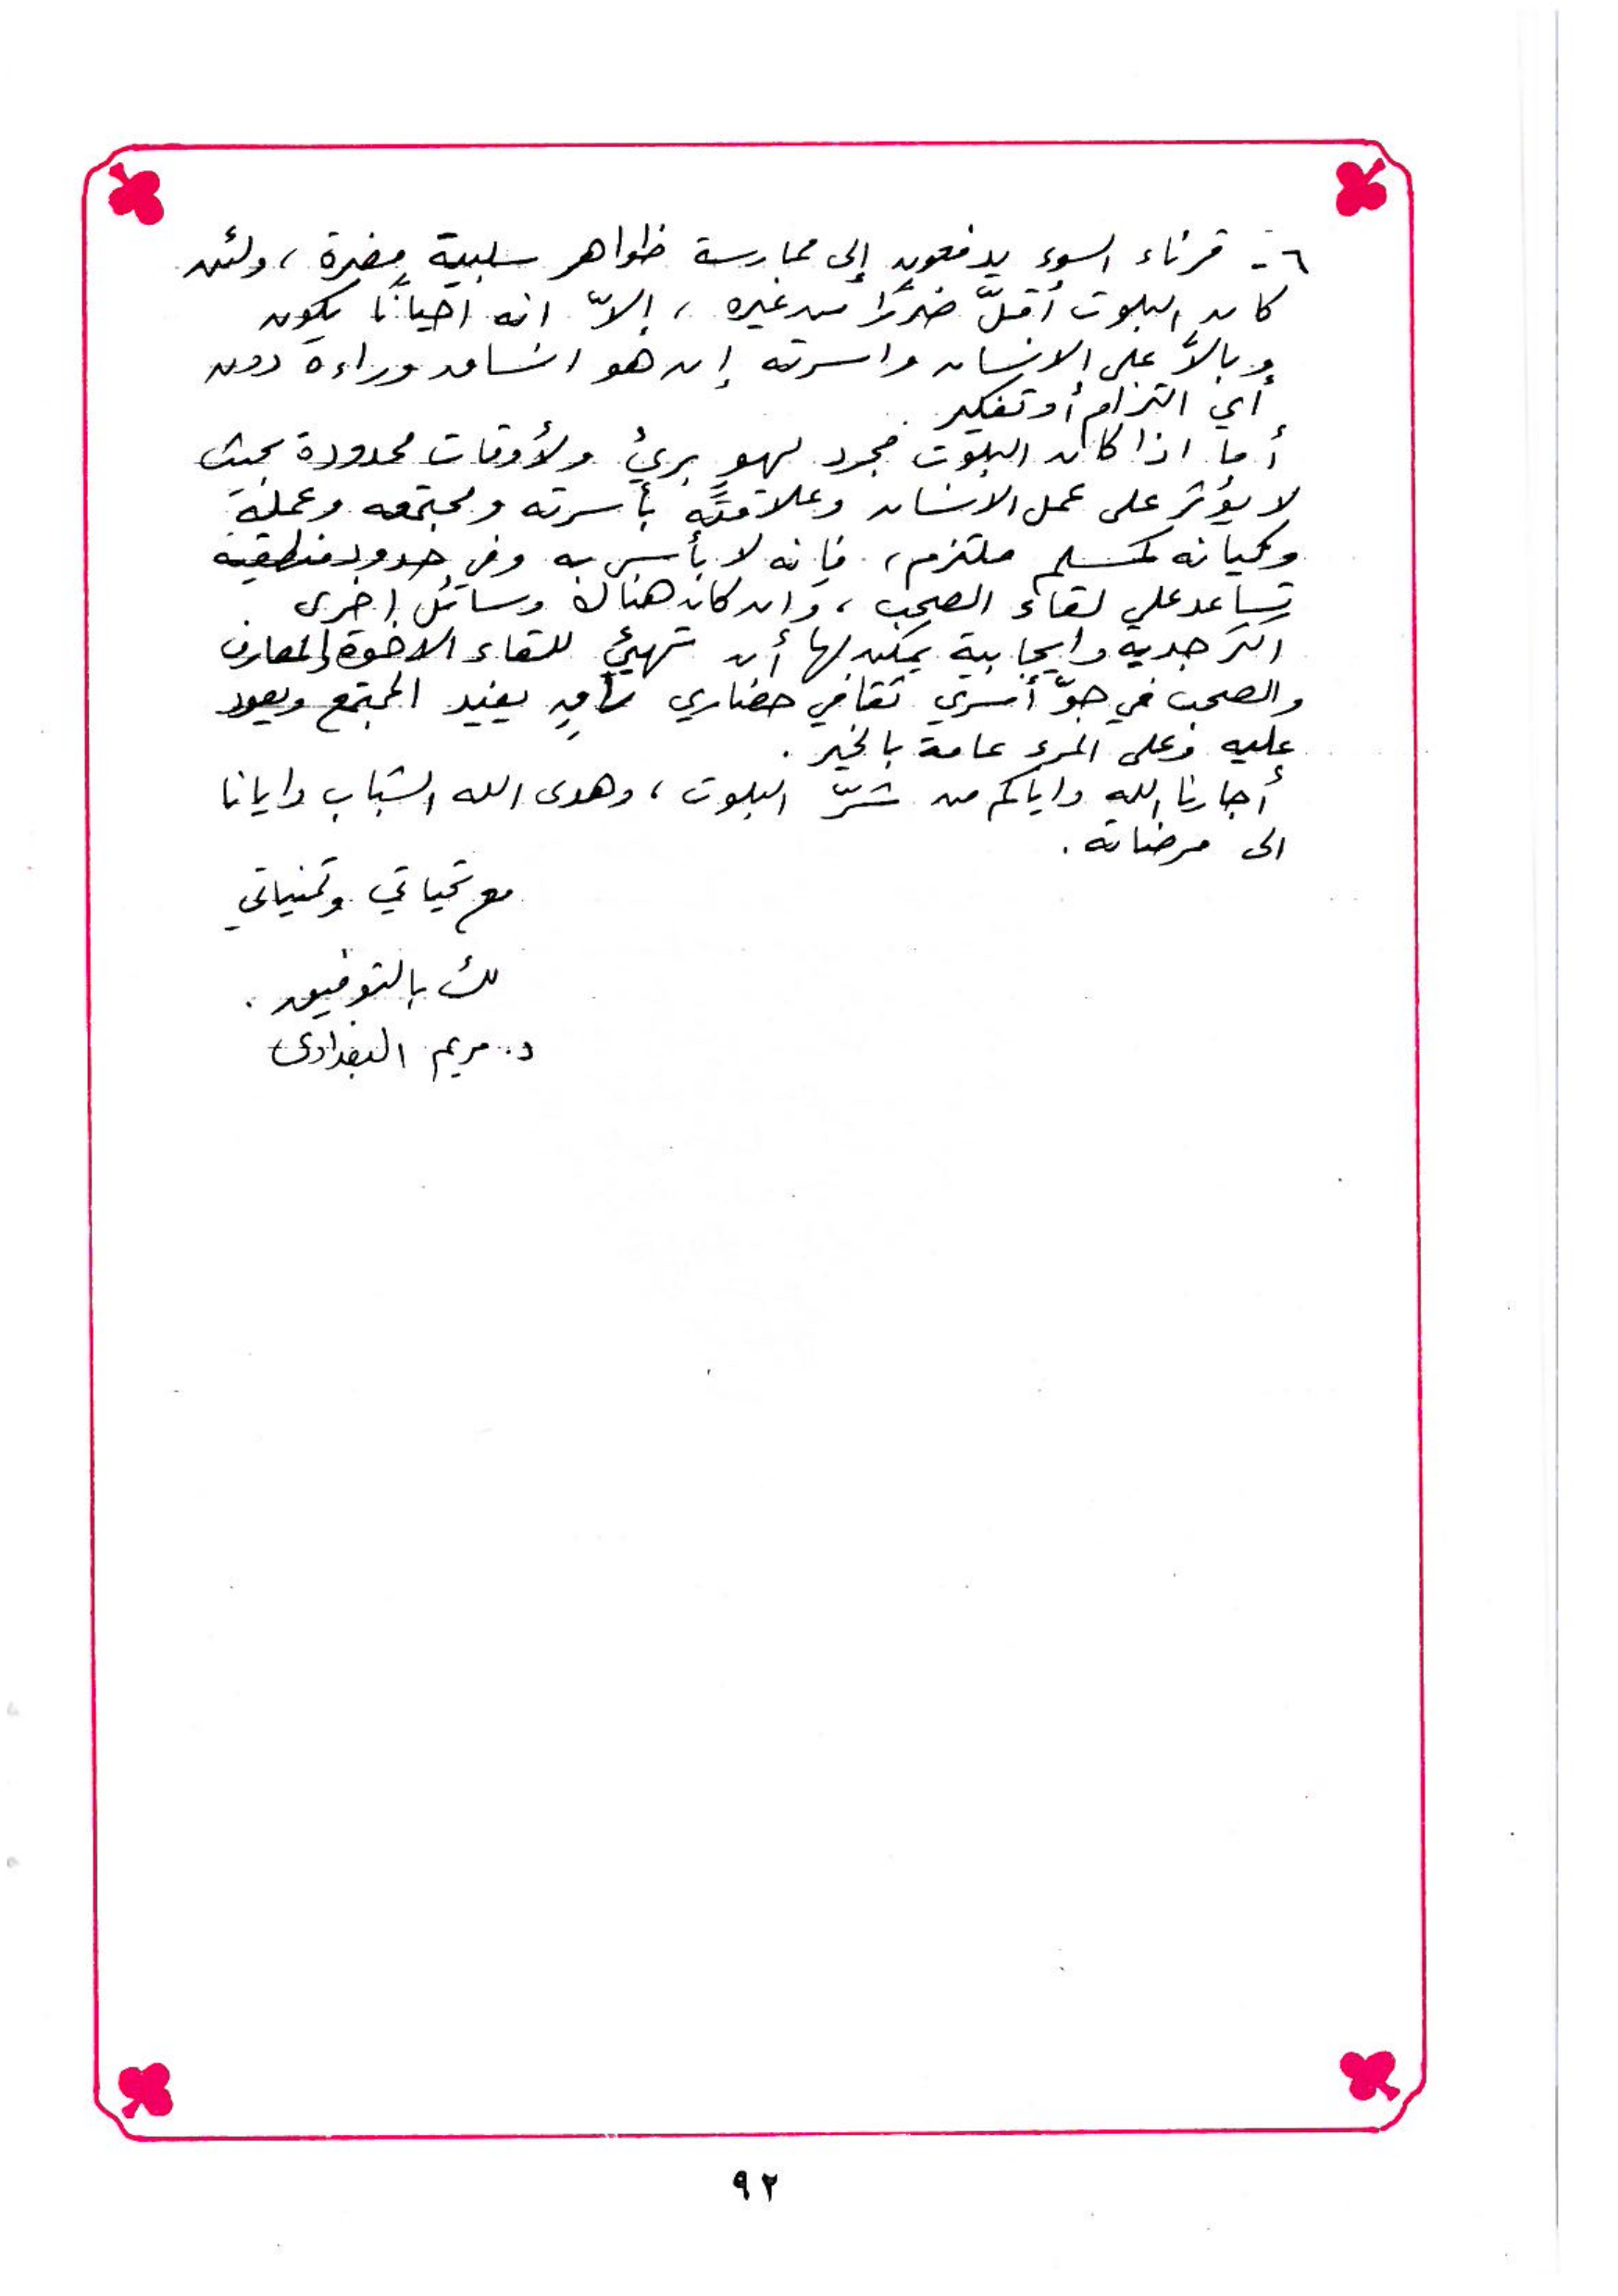 ٦- قرناء السوء يدفعون إلى ممارسة ظواهر سلبية مضرة ، ولئن
كان البلوت أقلّ ضررًا من غيره ، إلاّ انه احيانًا يكون
وبالاً على الانسان واسرته إن هو انساق وراءه دون
أي التزام أو تفكير .
أما اذا كان البلوت مجرد لهو بريئ ولأوقات محدودة بحيث
لا يؤثر على عمل الانسان وعلاقته بأسرته ومجتمعه وعمله
وكيانه كمسلم ملتزم ، فإنه لا بأس به وفي حدود منطقية
تساعد على لقاء الصحب ، وان كان هناك وسائل اخرى
اكثر جدية وايجابية يمكن لها أن تهيئ للقاء الاخوة والمعارف
والصحب في جوّ أسري ثقافي حضاري يفيد المجتمع ويعود
عليه وعلى المرء عامة بالخير .
أجارنا الله واياكم من شرّ البلوت ، وهدى الله الشباب وايانا
الى مرضاته .
مع تحياتي وتمنياتي
لك بالتوفيق .
د. مريم البغدادى
٩٢